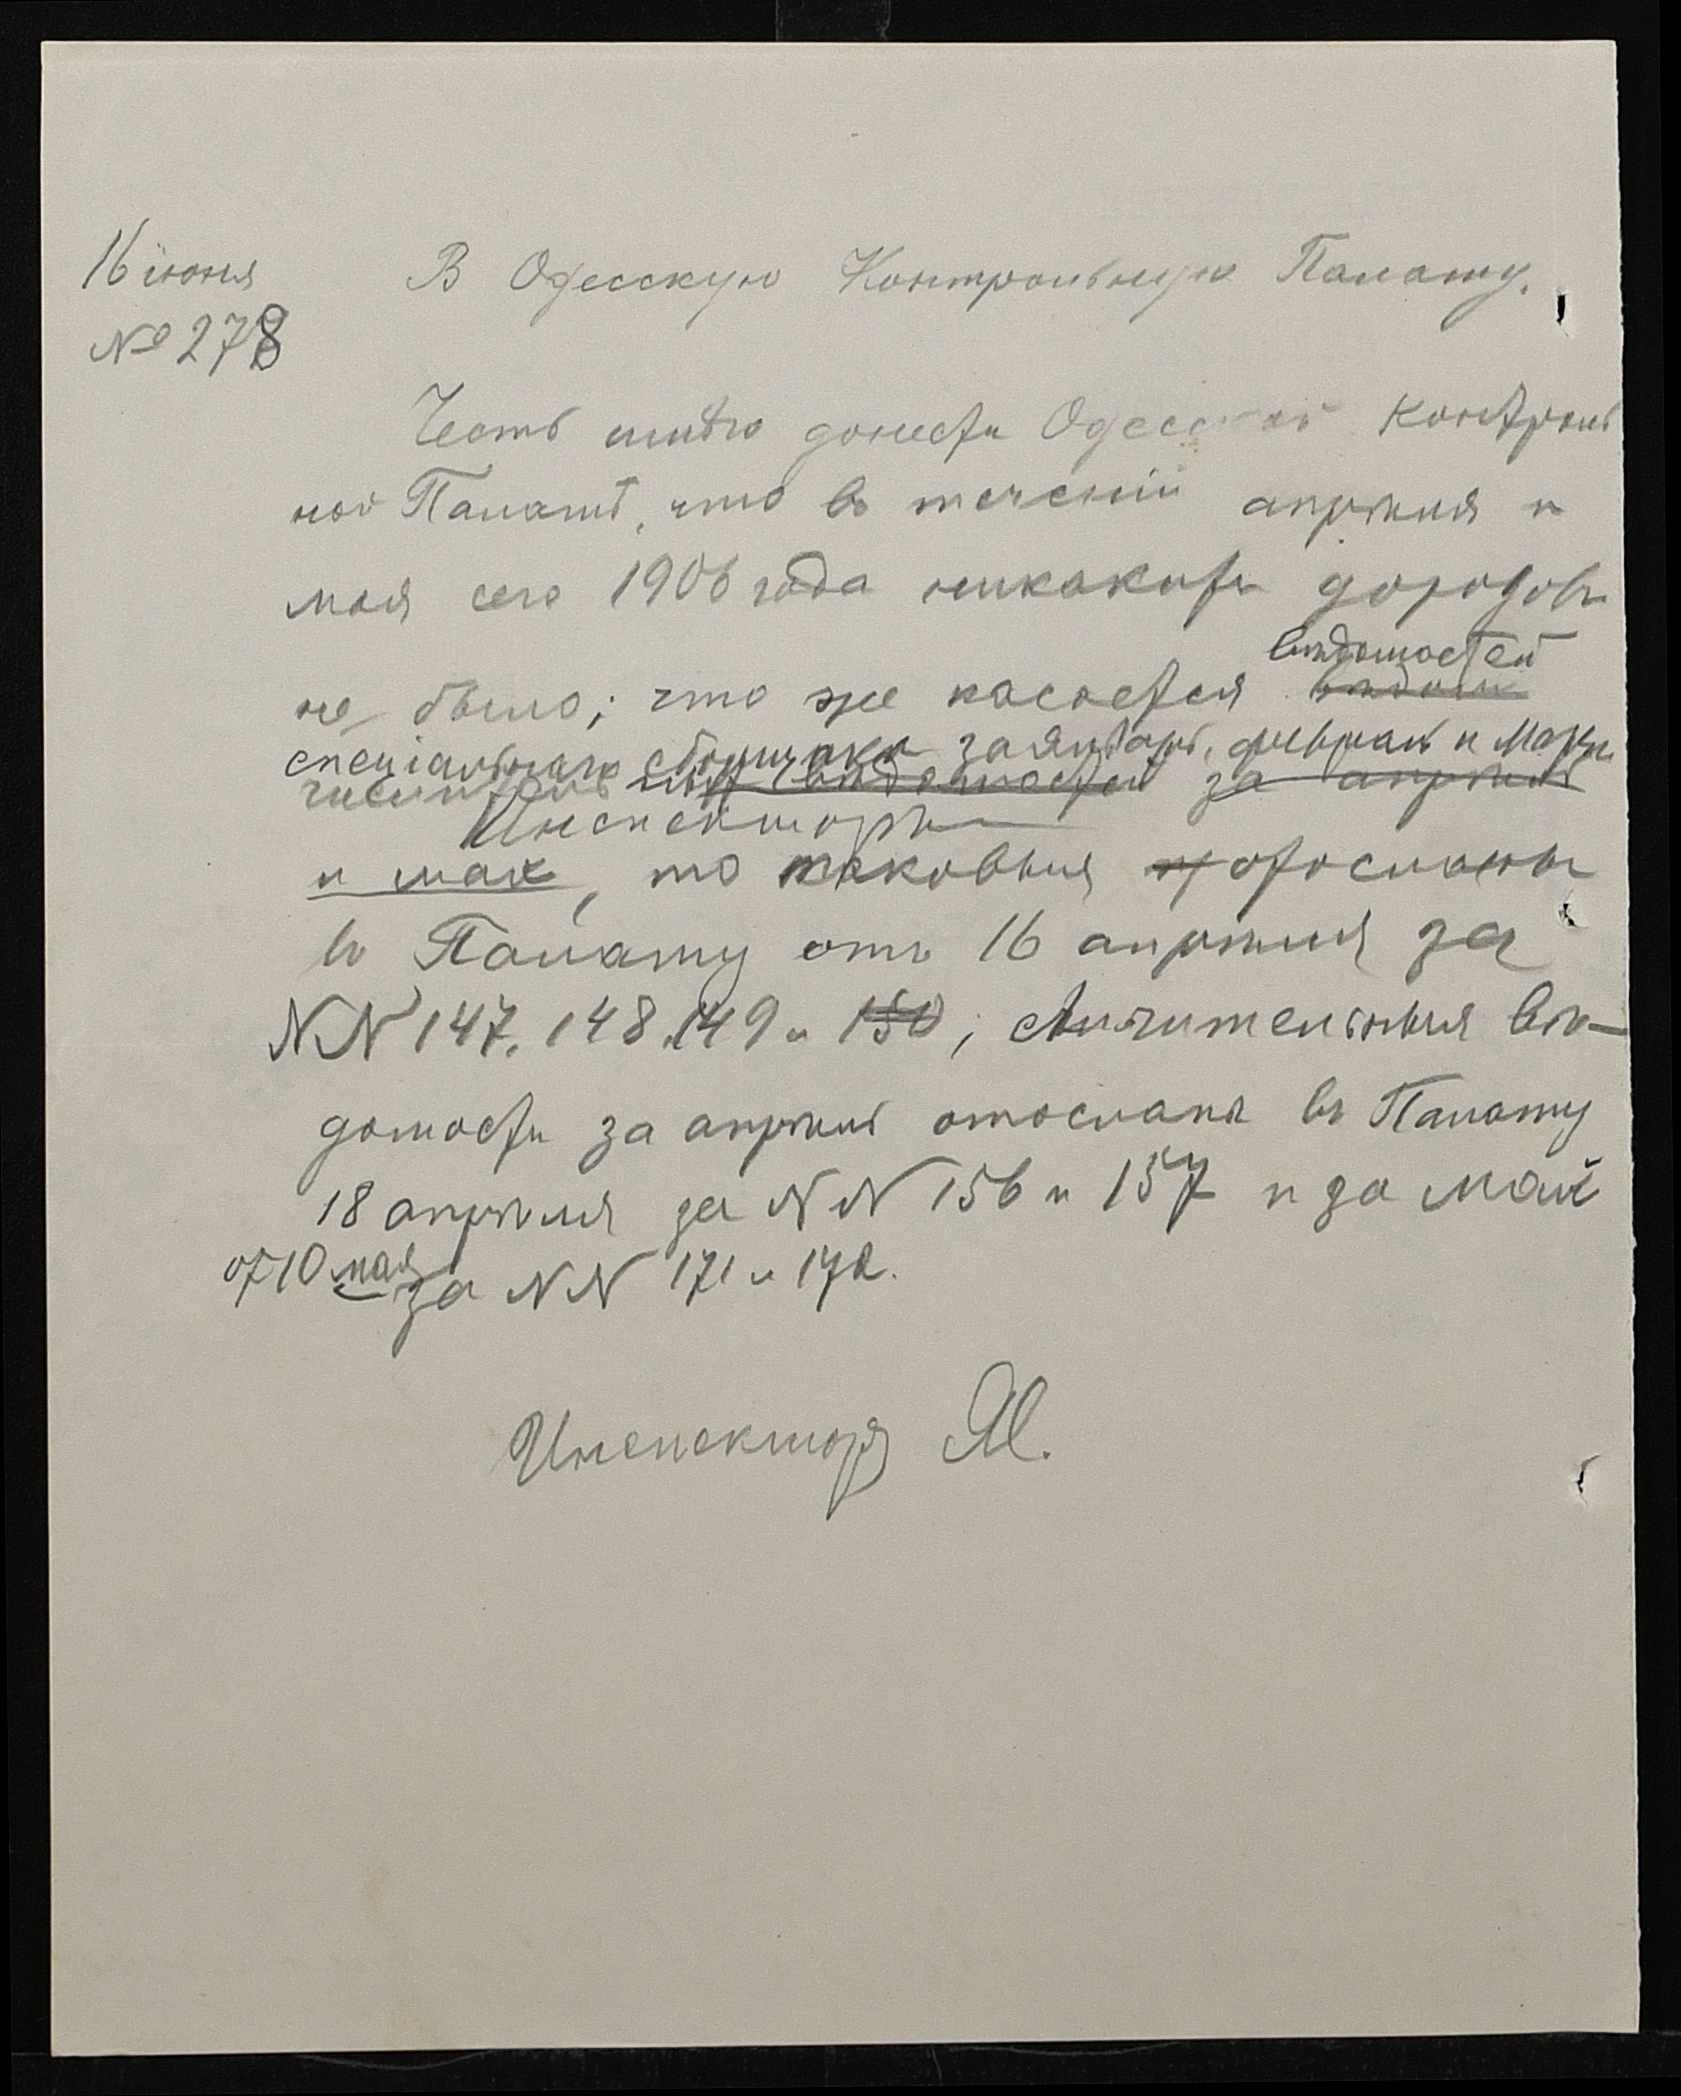 16 июня
№ 278
В Одесскую Контрольную Палату.
Честь имѣю донести Одесской Контроль
ной Палатѣ, что въ теченіи апрѣля и
мая сего 1906 года никакихъ доходовъ
вѣдомостей
не было; что же касается вѣдом
спеціальнаго сборщика за январь, февраль и Мартъ
вѣдомостей за апрѣль
Инспекторъ
и май, то таковыя отосланы
въ Палату отъ 16 апрѣля за
NN 147, 148, 149 и 150; Личительныя вѣ-
домости за апрѣль отосланы въ Палату
18 апрѣля за NN 156 и 157 и за май
от 10 мая за NN 171 и 172.
Инспекторъ